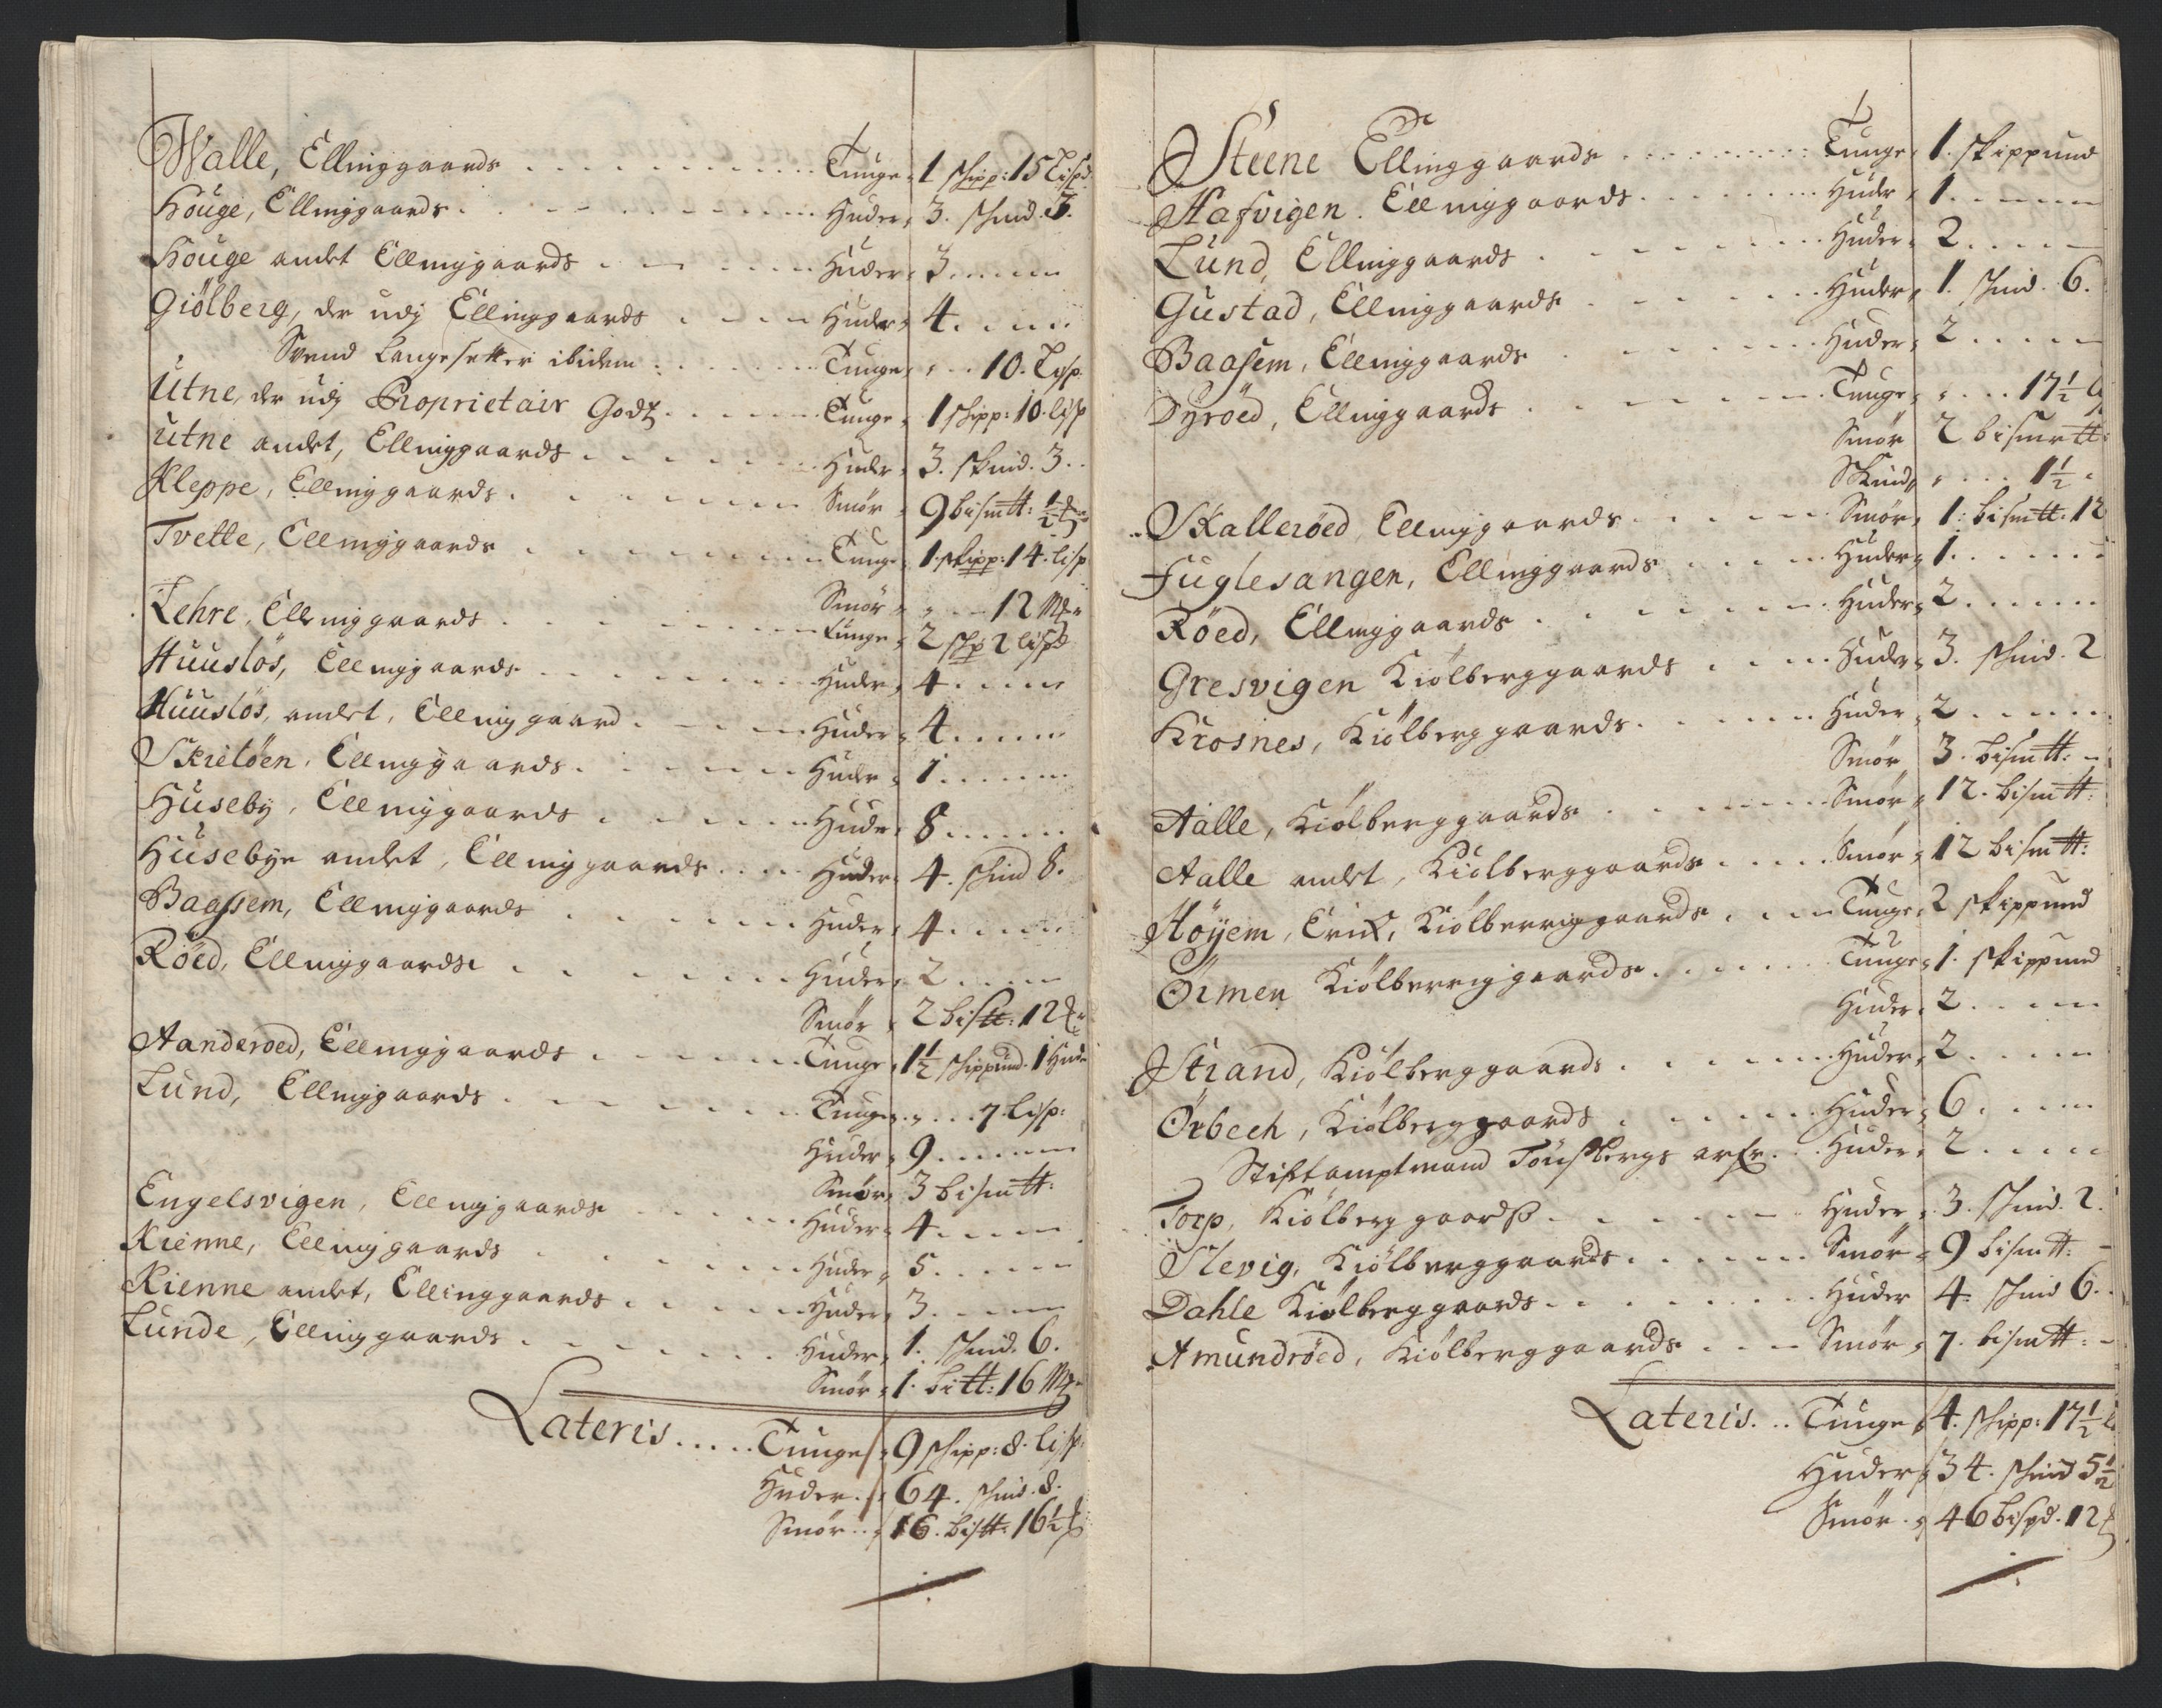 Walle, Ellinggaards . . . . . . . . . Tunge 1 schipp: 15 Lispd
Houge, Ellinggaards . . . . . . . . . Huder, 3. schind. 3.
Houge andet Ellinggaards . . . . . . Huder, 3 . . . . .
Giölberg, der udj Ellinggaards . . . . Huder, 4 . . . . .
Svend Langesetter ibidem . . . . . . Tunge, „ . . 10. Lisp
Utne, der udj Proprietair Godtz . . . . . Tunge, 1 schipp: 10. lisp
Utne andet, Ellinggaards . . . . . . . Huder, 3. skind. 3 . .
Kleppe, Ellinggaards . . . . . . . Smör, 9 bismtt: ½
Tvette, Ellinggaards . . . . . . . . Tunge, 1. skipp: 14. lisp
Smör, „ . . 12 Mkr
Lehre, Ellinggaards . . . . . . . . Tunge, 2 schp 2 lispd
Huuslös, Ellinggaards . . . . . . . Huder, 4 . . . . .
Huuslös, andet, Ellinggaard . . . . . Huder, 4 . . . . .
Skrelöen, Ellinggaards . . . . . . . Huder, 1 . . . . .
Huseby, Ellinggaards . . . . . . . Huder, 8 . . . . .
Husebye andet, Ellinggaards . . . . Huder, 4. schind 8.
Baassem, Ellinggaards . . . . . . . Huder, 4 . . . . .
Röed, Ellinggaards . . . . . . . . Huder, 2 . . . .
Smör, 2 bistt: 12
Aanderoed, Ellinggaards . . . . . . Tunge, 1½ schippund. 1 Hud
Lund, Ellinggaards . . . . . . . . Tunge, „ . . . 7. lisp:
Huder, 9 . . . . . .
Smör, 3 bismtt:
Engelsvigen, Ellinggaards . . . . . Huder, 4 . . . . .
Kienne, Ellinggaards . . . . . . . Huder, 5 . . . . .
Kienne andet, Ellinggaards . . . . . Huder, 3 . . . . .
Lunde, Ellinggaards . . . . . . . . Huder, 1. schind. 6.
Smör, 1. bitt: 16 Mk
Lateris . . . . . Tunge, 9 schipp: 8. lisp:
Huder . . 64. schind. 8.
Smör . . 16. bistt: 16½
Steene Ellinggaards . . . . . . . . Tunge, 1. skippund
Hafvigen. Ellinggaards . . . . . . . Huder, 1 . . . . .
Lund, Ellinggaards . . . . . . . . Huder, 2 . . . . .
Gustad, Ellinggaards . . . . . . . Huder, 1. schind. 6.
Baasem, Ellinggaards . . . . . . . Huder, 2 . . . . .
Dyröed, Ellinggaards . . . . . . . Tunge, „ . . . 17½
Smör 2 bismtt:
Skind, „ . . . 1½
Skalleröed, Ellinggaards . . . . . Smör, 1: bismtt: 12
Fuglesangen, Ellinggaards . . . . . Huder, 1 . . . . .
Röed, Ellinggaards . . . . . . . . Huder, 2 . . . . .
Gresvigen Kiölberggaards . . . . Huder, 3. schind. 2
Krosnes, Kiölberggaards . . . . . . Huder, 2 . . . . .
Smör 3. bismtt:
Aalle, Kiölberggaards . . . . . . . Smör, 12. bismtt:
Aalle andet, Kiölberggaards . . . . Smör, 12 bismtt:
Höyem, Erik, Kiölberriggaards . . . Tunge, 2 skippund
Örmen Kiölberriggaards . . . . . . Tunge, 1. skippund
Huder, 2 . . . . .
Strand, Kiölberggaards . . . . . . Huder, 2 . . . . .
Örbech, Kiölberggaards . . . . . . Huder, 6 . . . . .
Stiftamptmand Tönsbergs arfr. . . Huder, 2 . . . . .
Torp, Kiölberggaards . . . . . . . Huder, 3. schind. 2.
Slevig, Kiölberggaards . . . . . . Smör, 9 bismtt:
Dahle Kiölberggaards . . . . . . . Huder 4. schind 6.
Amundröed, Kiölberggaards . . . Smör, 7. bismtt:
Lateris . . . Tunge, 4. schipp: 17½
Huder, 34. schind 5½
Smör, 46 bispd. 12